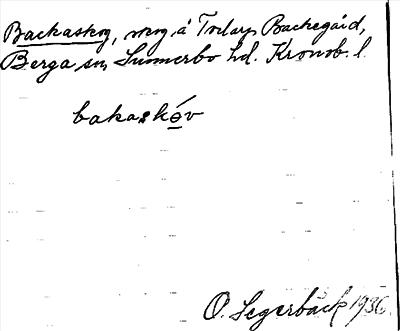 Backaskog, skog á Tvelarp Backegård,
Berga sn, Sunnerbo hd. Kronob. l.
bakaskóv
O. Segerbäck 1936.